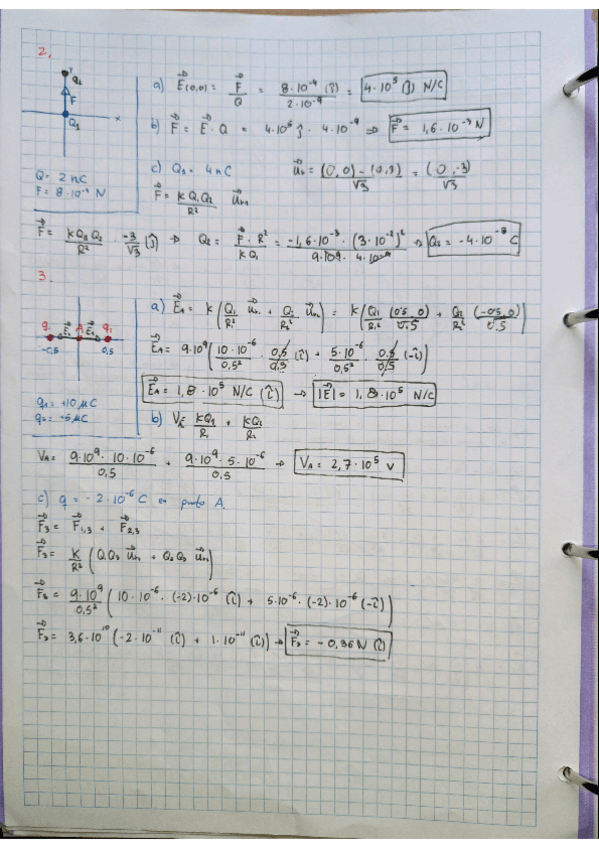 2.
y
q₂
F
x
Q₁
Q = 2 nC
F = 8·10⁻⁴ N
a) E⃗(0,0) = F⃗/Q = 8·10⁻⁴ (ĵ)/2·10⁻⁹ = 4·10⁵ (ĵ) N/C
b) F⃗ = E⃗·Q = 4·10⁵ ĵ · 4·10⁻⁹ ⇒ F⃗ = 1,6·10⁻³ N
c) Q₃ = 4 nC
F⃗ = K Q₁Q₂/R²
= (0,-3)/√3
F⃗ = /R² · -3/√3 (ĵ) ⇒ Q₂ = F⃗·R²/KQ₁ = -1,6·10⁻³·(3·10⁻²)²/ ⇒ Q₂ = -4·10⁻⁸ C
3.
q₂ E⃗₁ A E⃗₂ q₁
-0,5 0,5
q₁ = +10 μC
q₂ = +5 μC
a) E⃗ₐ = K(Q₁/R₁² u⃗r₁ + Q₂/R₂² u⃗r₂) = K(Q₁/R₁² (0.5, 0)/0.5 + Q₂/R₂² (-0.5, 0)/0.5)
E⃗ₐ = 9·10⁹(10·10⁻⁶/0,5² · 0,5/0,5 (î) + 5·10⁻⁶/0.5² · 0.5/0,5 (-î))
E⃗ₐ = 1,8·10⁵ N/C (î) → |E⃗| = 1,8·10⁵ N/C
b) Vₐ = KQ₁/R₁ + KQ₂/R₂
Vₐ = 9·10⁹·10·10⁻⁶/0,5 + 9·10⁹·5·10⁻⁶/0.5 → Vₐ = 2,7·10⁵ V
c) q = -2·10⁻⁶ C en punto A.
F⃗₃ = F⃗₁,₃ + F⃗₂,₃
F⃗₃ = K/R² (Q₁Q₃ u⃗r₁ + Q₂Q₃ u⃗r₂)
F⃗₃ = 9·10⁹/0,5² (10·10⁻⁶·(-2)·10⁻⁶ (î) + 5·10⁻⁶·(-2)·10⁻⁶ (-î))
F⃗₃ = 3,6·10¹⁰ (-2·10⁻¹¹ (î) + 1·10⁻¹¹ (î)) → F⃗₃ = -0,36 N (î)